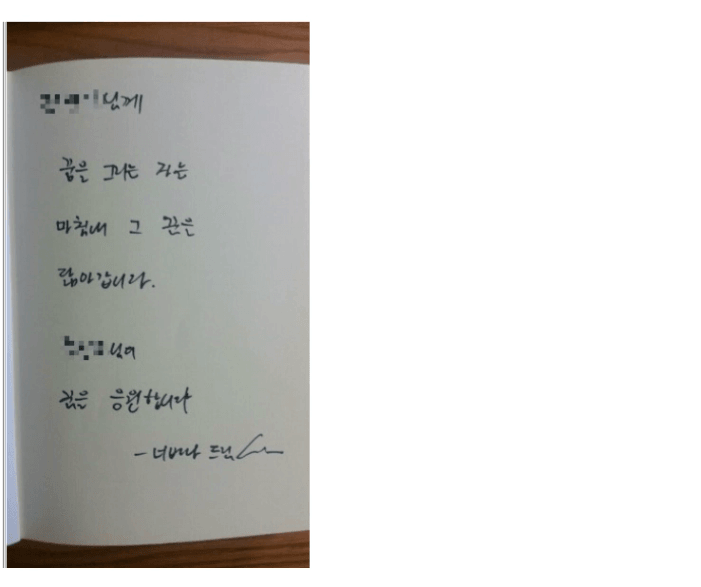 님께
꿈을 그리는 자는
마침내 그 꿈을
닮아갑니다.
님의
꿈을 응원합니다
드림